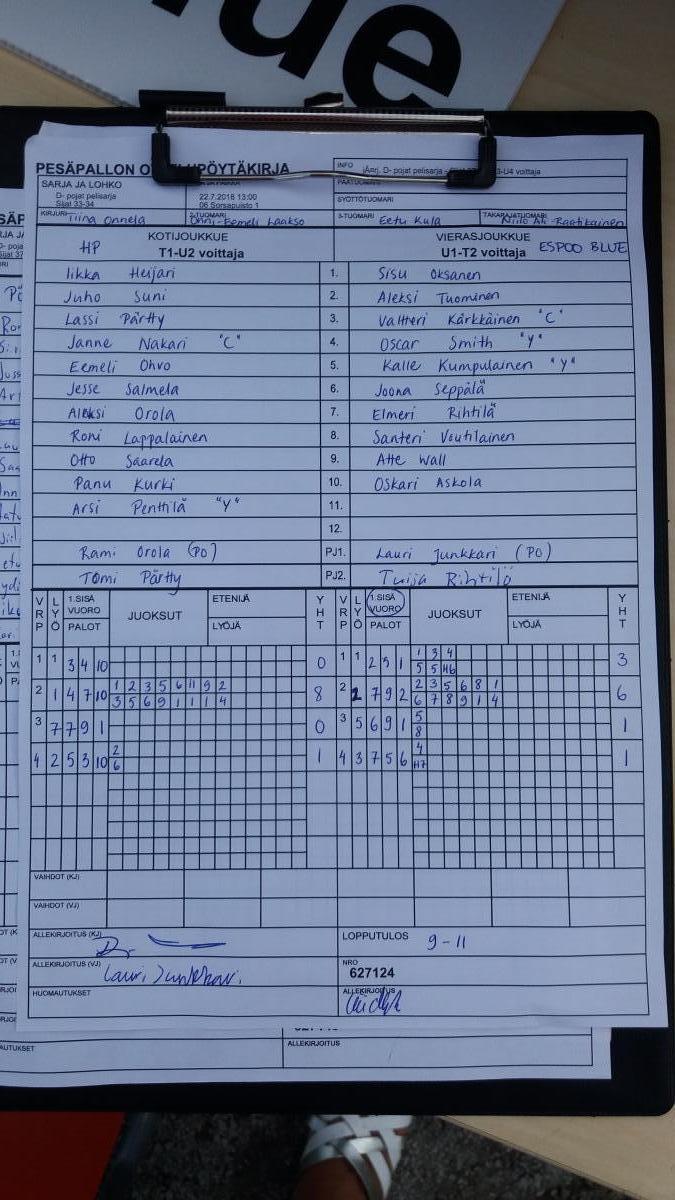 ue
PESÄPALLON O
UPÖYTÄKIRJA
INFO
D- pojat pelisarja
3-U4 voittaja
SARJA JA LOHKO
D- pojat pelisarja
Sijat 33-34
22.7.2018 13:00
06 Sorsapuisto 1
SYÖTTÖTUOMARI
KIRJURI Tiina Onnela
2-TUOMARI Onni-Eemeli Laakso
3-TUOMARI Eetu Kula
TAKARAJATUOMARI
KOTIJOUKKUE
HP T1-U2 voittaja
VIERASJOUKKUE
U1-T2 voittaja ESPOO BLUE
Iikka Heijari 1. Sisu Oksanen
Juho Suni 2. Aleksi Tuominen
Lassi Pärtty 3. Valtteri Kärkkäinen "C"
Janne Nakari "C" 4. Oscar Smith "Y"
Eemeli Ohvo 5. Kalle Kumpulainen "Y"
Jesse Salmela 6. Joona Seppälä
Aleksi Orola 7. Elmeri Rihtilä
Roni Lappalainen 8. Santeri Voutilainen
Otto Saarela 9. Atte Wall
Panu Kurki 10. Oskari Askola
Arsi Penttilä "Y" 11.
12.
Rami Orola (PO) PJ1. Lauri Junkkari (PO)
Tomi Pärtty PJ2. Tuija Rihtilä
VRP LYÖ 1.SISÄ VUORO PALOT JUOKSUT ETENIJÄ LYÖJÄ YHT VRP LYÖ 1.SISÄ VUORO PALOT JUOKSUT ETENIJÄ LYÖJÄ YHT
1 1 3 4 10 0 1 1 2 9 1 1 3 4 3
5 5 H6
2 1 4 7 10 1 2 3 5 6 11 9 2 8 2 2 7 9 2 2 3 5 6 8 1 6
3 5 6 9 1 1 1 4 6 7 8 9 1 4
3 7 7 9 1 0 3 5 6 9 1 5 1
8
4 2 5 3 10 2 1 4 3 7 5 6 4 1
6 H7
VAIHDOT (KJ)
VAIHDOT (VJ)
ALLEKIRJOITUS (KJ)
LOPPUTULOS 9-11
ALLEKIRJOITUS (VJ) Lauri Junkkari
NRO
627124
HUOMAUTUKSET
ALLEKIRJOITUS
AUTUKSET
ALLEKIRJOITUS